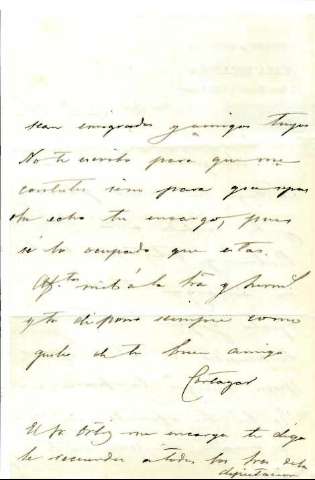 sean emigrados y amigos tuyos
No te escribo para que me
contestes sino para que sepas
he echo tu encargo, pues
sé lo ocupado que estas.
Af.tos mil á la Sra y herm.
y tu dispons siempre como
guste de tu buen amigo
Cortazar
El Sr Ortiz me encarga te diga
le recuerdes a todos los Sres de la
diputacion